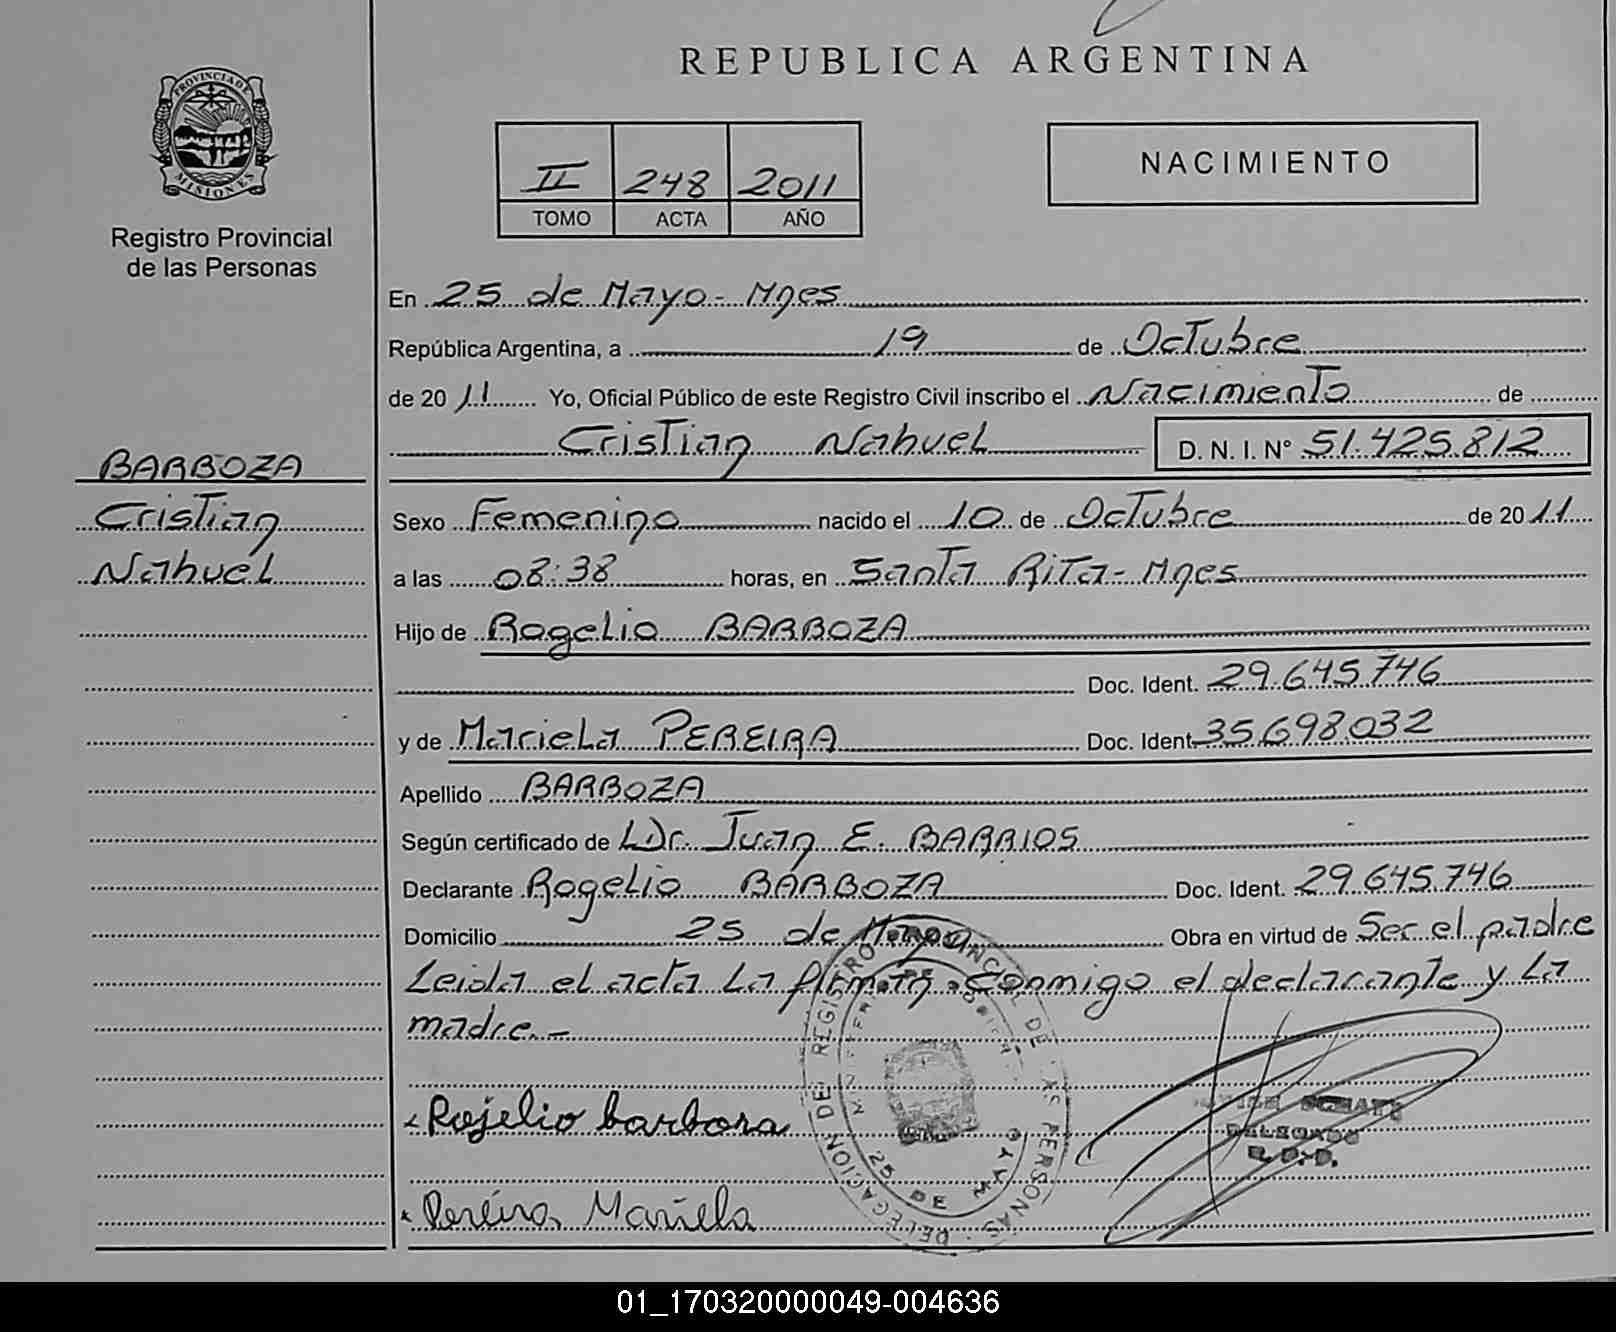 REPUBLICA ARGENTINA
PROVINCIA DE
MISIONES
Registro Provincial
de las Personas
II 248 2011
TOMO ACTA AÑO
NACIMIENTO
En 25 de Mayo - Mnes
República Argentina, a 19 de Octubre
de 2011 Yo, Oficial Público de este Registro Civil inscribo el Nacimiento de
Cristian Nahuel D. N. I. N° 51.425.812
BARBOZA
Cristian
Nahuel
Sexo Femenino nacido el 10 de Octubre de 2011
a las 08:38 horas, en Santa Rita - Mnes
Hijo de Rogelio BARBOZA
Doc. Ident. 29.645.746
y de Mariela PEREIRA Doc. Ident. 35.698.032
Apellido BARBOZA
Según certificado de Dr. Juan E. BARRIOS
Declarante Rogelio BARBOZA Doc. Ident. 29.645.746
Domicilio 25 de Mayo Obra en virtud de Ser el padre
Leida el acta La firman conmigo el declarante y La
madre.-
Rojelio barboza
Pereira Mariela
DELEGACION DEL REGISTRO PROVINCIAL DE LAS PERSONAS
25 DE MAYO
DELEGADO
01_170320000049-004636